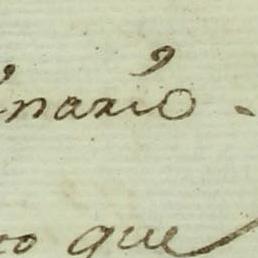 inario.
ro que